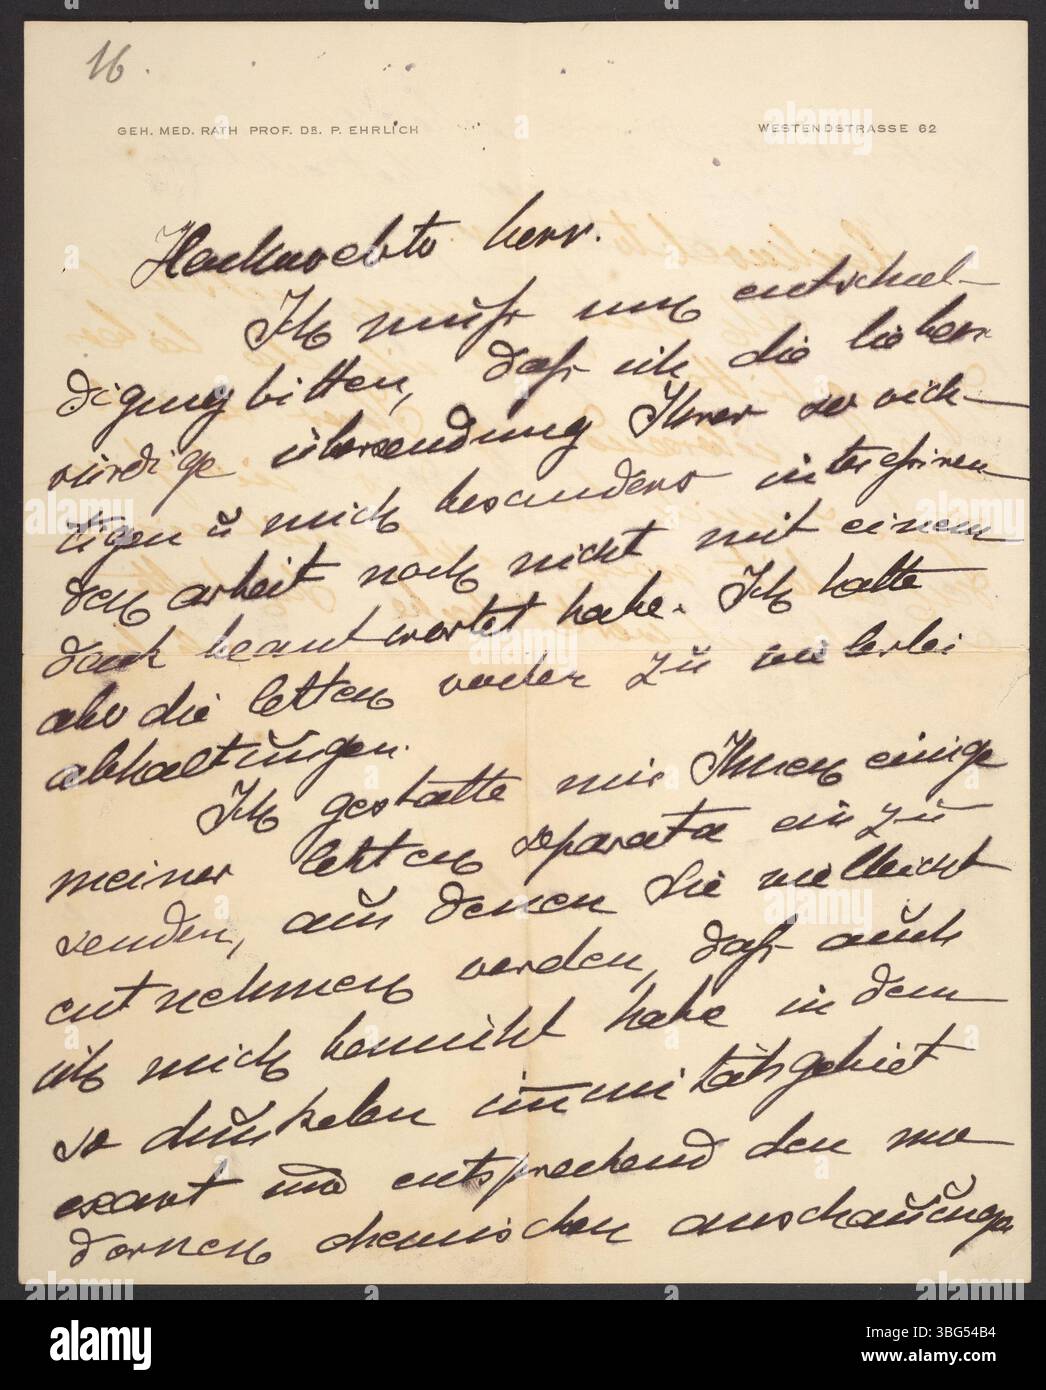 16.
GEH. MED. RATH PROF. DR. P. EHRLICH
WESTENDSTRASSE 62
Hochverehrter herr.
Ich muß um entschul-
digung bitten, daß ich die liebens-
würdige übersendung Ihrer so wich-
tigen u mich besonders interessiren
den arbeit noch nicht mit einem
dank beantwortet habe. Ich hatte
aber die letzten zu vielerlei
abhaltungen.
Ich gestatte mir Ihnen einige
meiner letzten separata ein zu
senden, aus denen Sie vielleicht
entnehmen werden, daß auch
ich mich bemüht habe in dem
so dunkelen immunitätsgebiet
exact und entsprechend den mo
dernen chemischen anschauungen
alamy
Image ID: 3BG54B4
www.alamy.com